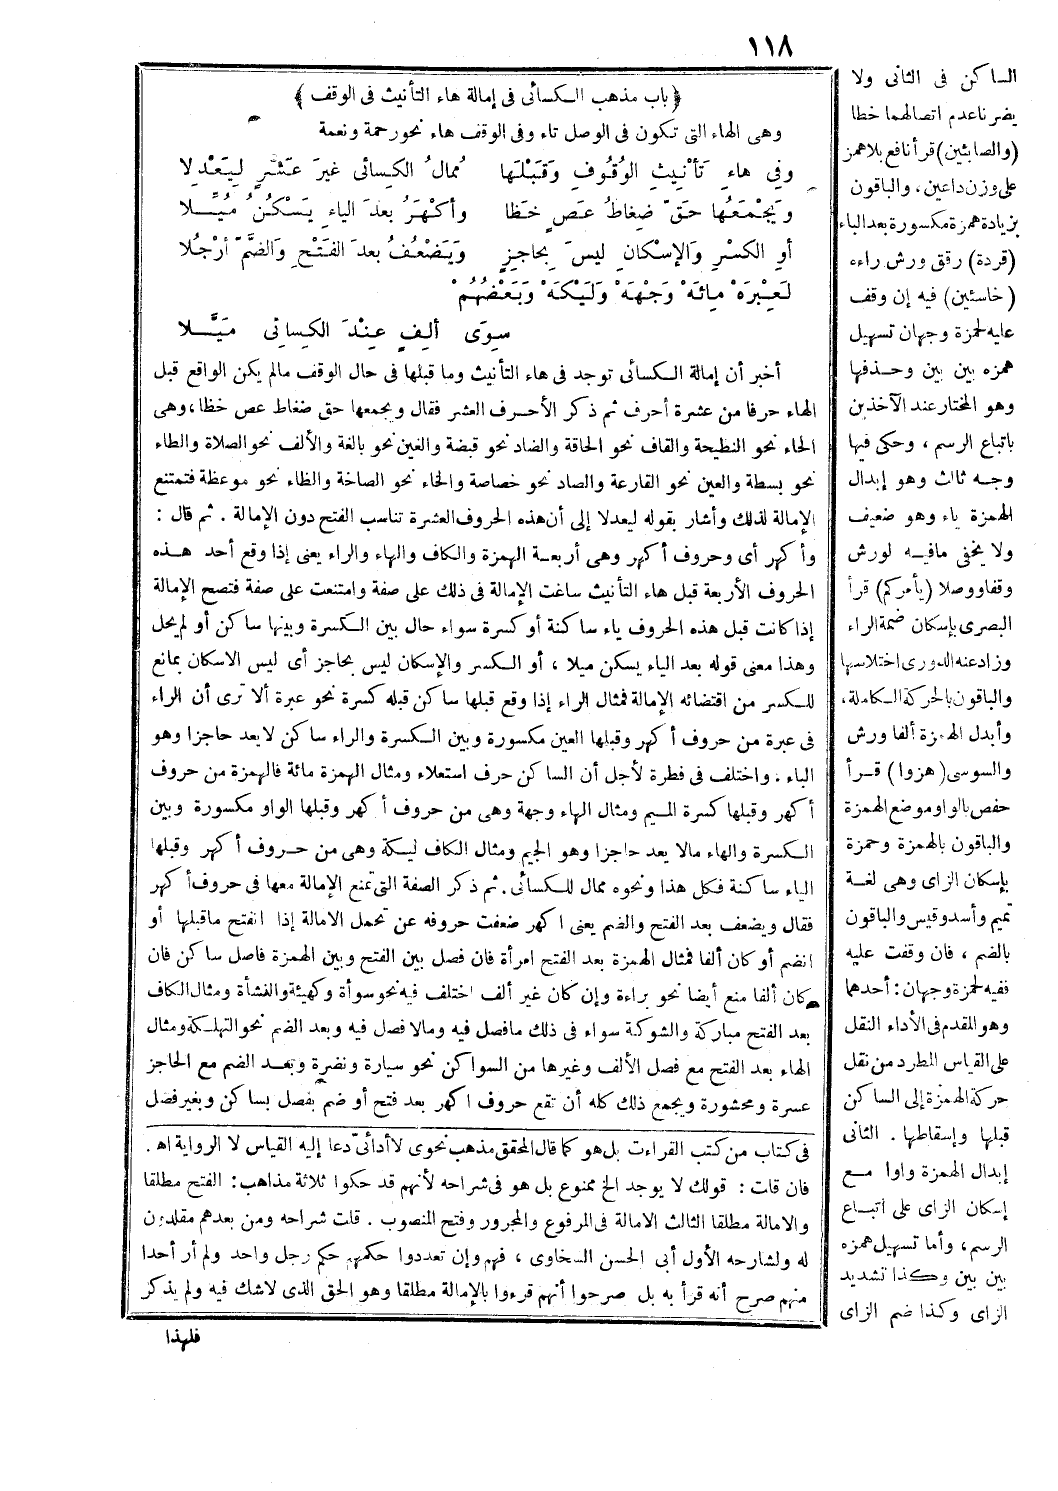 ١١٨
﴿ باب مذهب الكسائى فى إمالة هاء التأنيث فى الوقف ﴾
وهى الهاء التى تكون فى الوصل تاء وفى الوقف هاء نحو رحمة ونعمة
وفِي هاءِ تَأْنِيثِ الوُقُوفِ وَقَبْلَهَا مُمالُ الكِسائى غيرَ عَشْرٍ لِيَعْدِلا
وَيَجْمَعُها حَقٌّ ضِغاطُ عَصٍ خَظَا وأكْهَرُ بعدَ الياءِ يَسْكُنُ مُيِّلا
أوِ الكَسْرِ وَالإسْكانِ ليسَ بِحاجِزٍ وَيَضْعُفُ بعدَ الفَتْحِ وَالضَّمِّ أرْجُلا
لَعِبْرَهْ مِائَهْ وَجْهَهْ وَلَيْكَهْ وَبَعْضُهُمْ
سِوَى ألِفٍ عِنْدَ الكِسائى مَيَّلا
أخبر أن إمالة الكسائى توجد فى هاء التأنيث وما قبلها فى حال الوقف مالم يكن الواقع قبل
الهاء حرفا من عشرة أحرف ثم ذكر الأحرف العشر فقال ويجمعها حق ضغاط عص خظا، وهى
الحاء نحو النطيحة والقاف نحو الحاقة والضاد نحو قبضة والغين نحو بالغة والألف نحو الصلاة والطاء
نحو بسطة والعين نحو القارعة والصاد نحو خصاصة والخاء نحو الصاخة والظاء نحو موعظة فتمتنع
الإمالة لذلك وأشار بقوله ليعدلا إلى أن هذه الحروف العشرة تناسب الفتح دون الإمالة . ثم قال :
وأكهر أى وحروف أكهر وهى أربعة الهمزة والكاف والهاء والراء يعنى إذا وقع أحد هذه
الحروف الأربعة قبل هاء التأنيث ساغت الإمالة فى ذلك على صفة وامتنعت على صفة فتصح الإمالة
إذا كانت قبل هذه الحروف ياء ساكنة أو كسرة سواء حال بين الكسرة وبينها ساكن أو لم يحل
وهذا معنى قوله بعد الياء يسكن ميلا ، أو الكسر والإسكان ليس بحاجز أى ليس الاسكان بمانع
للكسر من اقتضائه الإمالة فمثال الراء إذا وقع قبلها ساكن قبله كسرة نحو عبرة ألا ترى أن الراء
فى عبرة من حروف أكهر وقبلها العين مكسورة وبين الكسرة والراء ساكن لايعد حاجزا وهو
الباء . واختلف فى فطرة لأجل أن الساكن حرف استعلاء ومثال الهمزة مائة فالهمزة من حروف
أكهر وقبلها كسرة الميم ومثال الهاء وجهة وهى من حروف أكهر وقبلها الواو مكسورة وبين
الكسرة والهاء مالا يعد حاجزا وهو الجيم ومثال الكاف ليكة وهى من حروف أكهر وقبلها
الياء ساكنة فكل هذا ونحوه ممال للكسائى . ثم ذكر الصفة التى تمنع الإمالة معها فى حروف أكهر
فقال ويضعف بعد الفتح والضم يعنى اكهر ضعفت حروفه عن تحمل الامالة إذا انفتح ماقبلها أو
انضم أو كان ألفا فمثال الهمزة بعد الفتح امرأة فان فصل بين الفتح وبين الهمزة فاصل ساكن فان
كان ألفا منع أيضا نحو براءة وإن كان غير ألف اختلف فيه نحو سوأة وكهيئة والنشأة ومثال الكاف
بعد الفتح مباركة والشوكة سواء فى ذلك مافصل فيه ومالا فصل فيه وبعد الضم نحو التهلكة ومثال
الهاء بعد الفتح مع فصل الألف وغيرها من السواكن نحو سيارة ونضرة وبعد الضم مع الحاجز
عسرة ومحشورة ويجمع ذلك كله أن تقع حروف اكهر بعد فتح أو ضم بفصل بساكن وبغير فصل
فى كتاب من كتب القراءت بل هو كما قال المحقق مذهب نحوى لا أدائى دعا إليه القياس لا الرواية اه .
فان قات : قولك لا يوجد الخ ممنوع بل هو فى شراحه لأنهم قد حكوا ثلاثة مذاهب : الفتح مطلقا
والامالة مطلقا الثالث الامالة فى المرفوع والمجرور وفتح المنصوب . قلت شراحه ومن بعدهم مقلدون
له ولشارحه الأول أبى الحسن السخاوى ، فهم وإن تعددوا حكمهم حكم رجل واحد ولم أر أحدا
منهم صرح أنه قرأ به بل صرحوا أنهم قرءوا بالإمالة مطلقا وهو الحق الذى لاشك فيه ولم يذكر
فلهذا
الساكن فى الثانى ولا
يضرنا عدم اتصالهما خطا
(والصابئين) قرأ نافع بلا همز
على وزن داعين ، والباقون
بزيادة همزة مكسورة بعد الباء
(قردة) رقق ورش راءه
(خاسئين) فيه إن وقف
عليه لحمزة وجهان تسهيل
همزه بين بين وحذفها
وهو المختار عند الآخذين
باتباع الرسم ، وحكى فيها
وجه ثالث وهو إبدال
الهمزة ياء وهو ضعيف
ولا يخفى مافيه لورش
وقفا ووصلا (يأمركم) قرأ
البصرى بإسكان ضمة الراء
وزاد عنه الدورى اختلاسها
والباقون بالحركة الكاملة،
وأبدل الهمزة ألفا ورش
والسوسى (هزوا) قرأ
حفص بالواو موضع الهمزة
والباقون بالهمزة وحمزة
بإسكان الزاى وهى لغة
تميم وأسد وقيس والباقون
بالضم ، فان وقفت عليه
ففيه لحمزة وجهان : أحدهما
وهو المقدم فى الأداء النقل
على القياس المطرد من نقل
حركة الهمزة إلى الساكن
قبلها وإسقاطها . الثانى
إبدال الهمزة واوا مع
إسكان الزاى على اتباع
الرسم ، وأما تسهيل همزه
بين بين وكذا تشديد
الزاى وكذا ضم الزاى